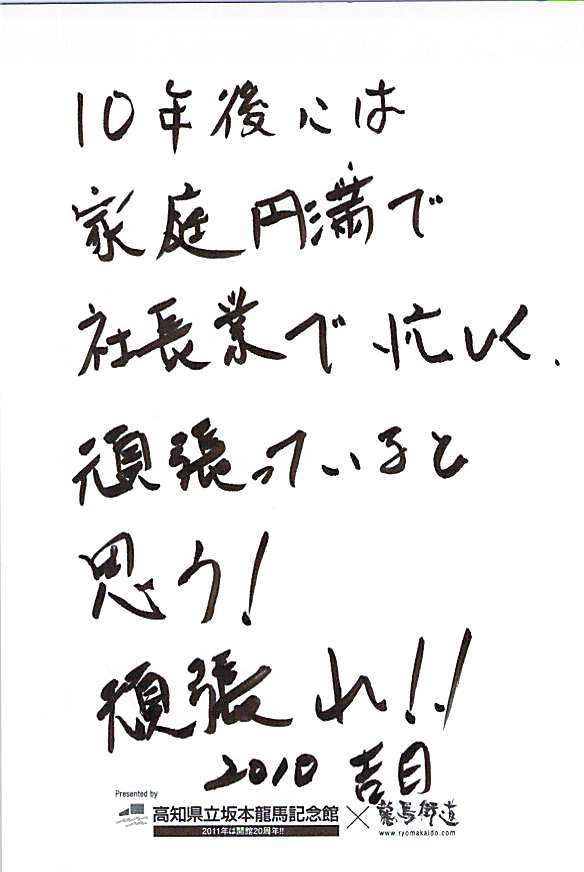 10年後には
家庭円満で
社長業で忙しく、
頑張っていると
思う!
頑張れ!!
2010 吉目
Presented by
高知県立坂本龍馬記念館 × 龍馬街道
2011年は開館20周年!!
www.ryomakaido.com